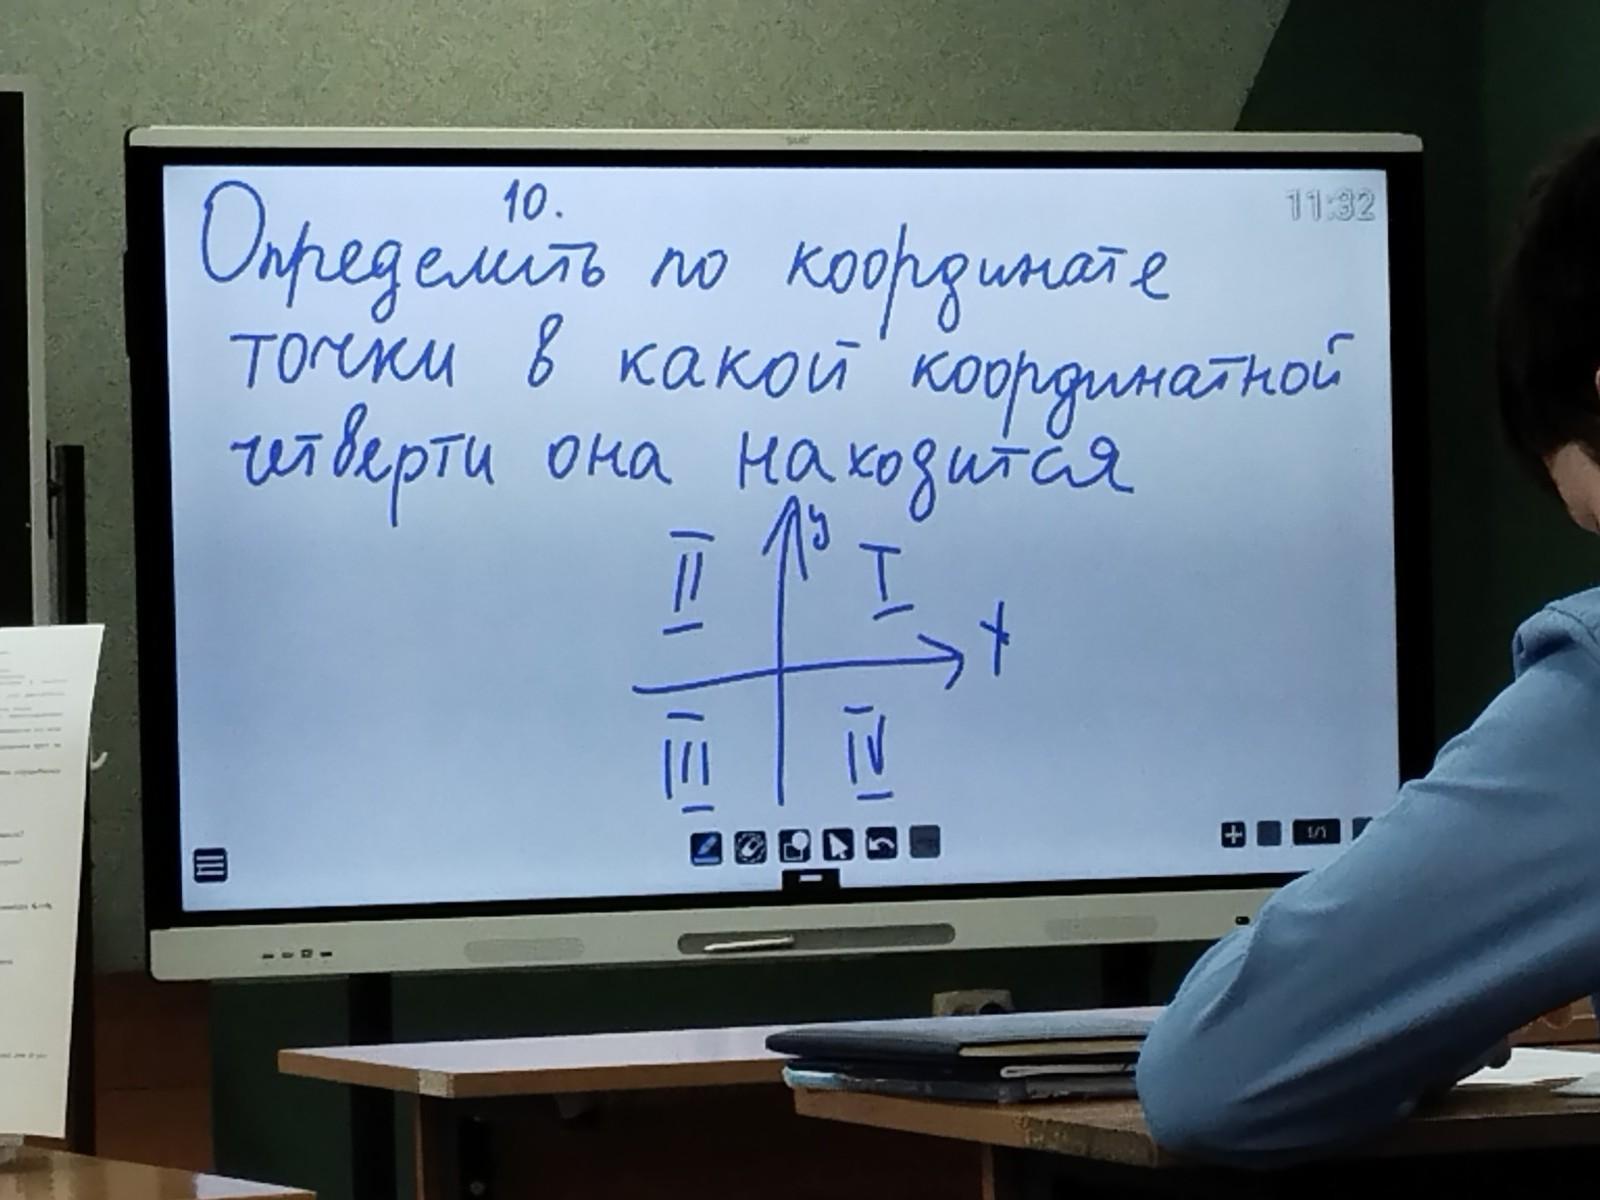 10.
11:32
Определить по координате
точки в какой координатной
четверти она находится
y
II I
x
III IV
1/1